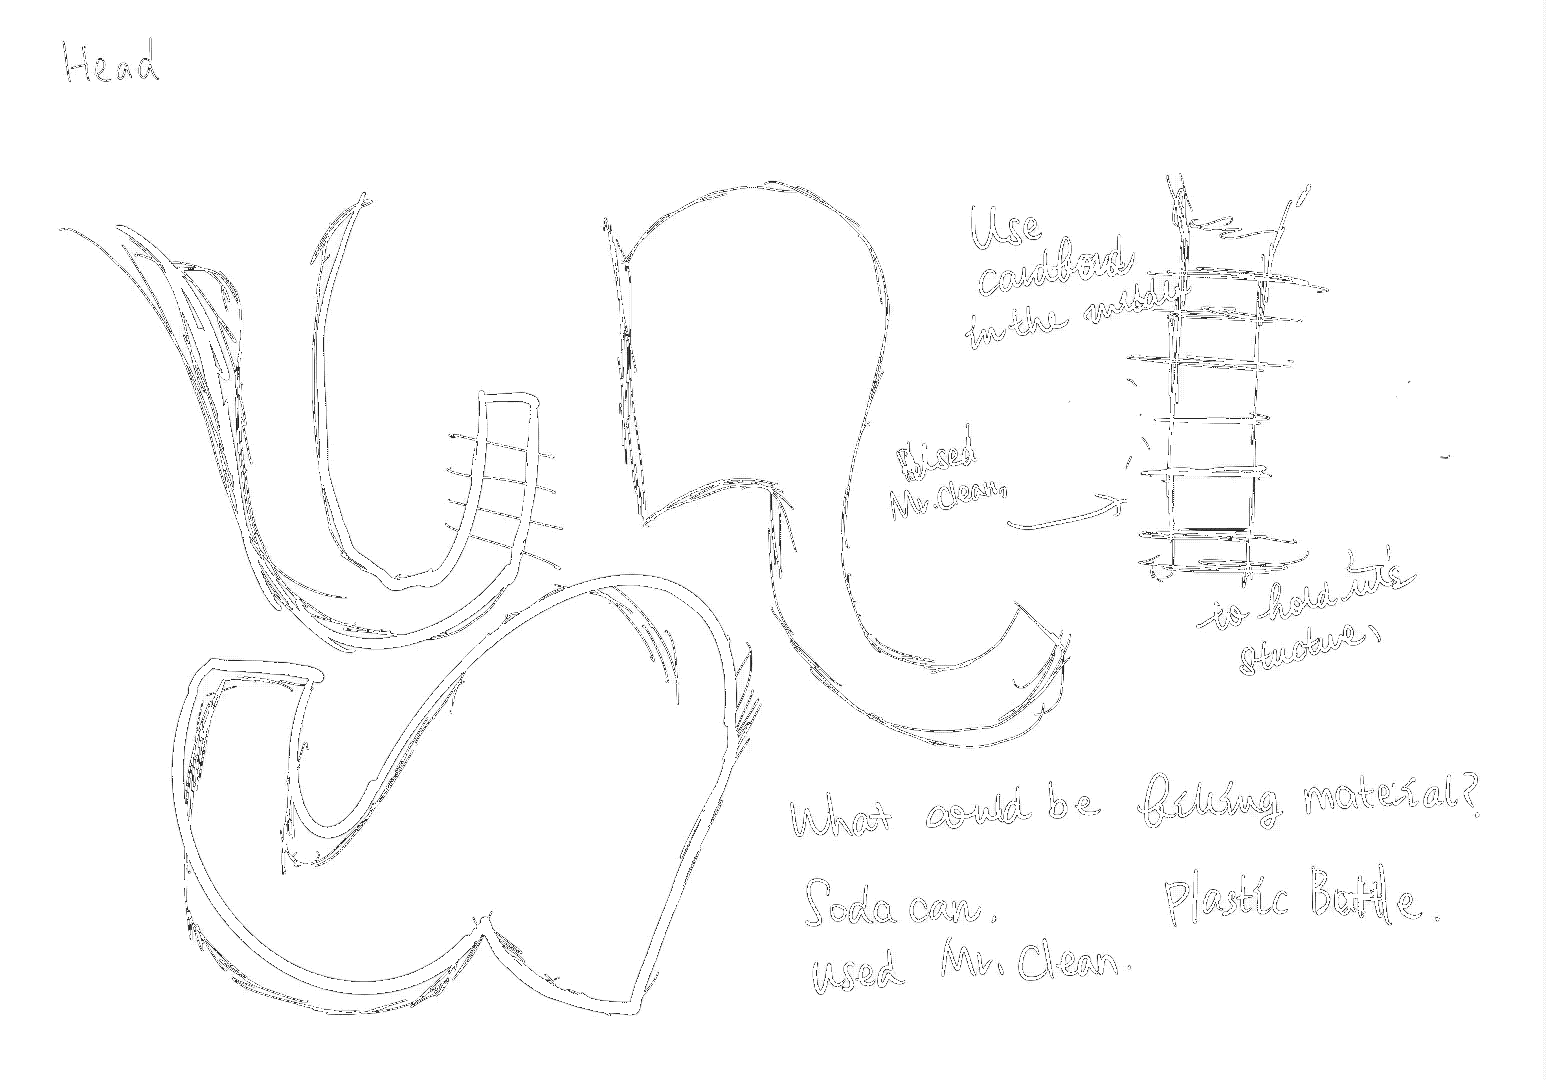 Head
Use
cardbord
in the middle
used
Mr. Clean,
to hold it's
stucture,
What could be filling material?
Soda can.
Plastic Bottle.
used Mr. Clean.